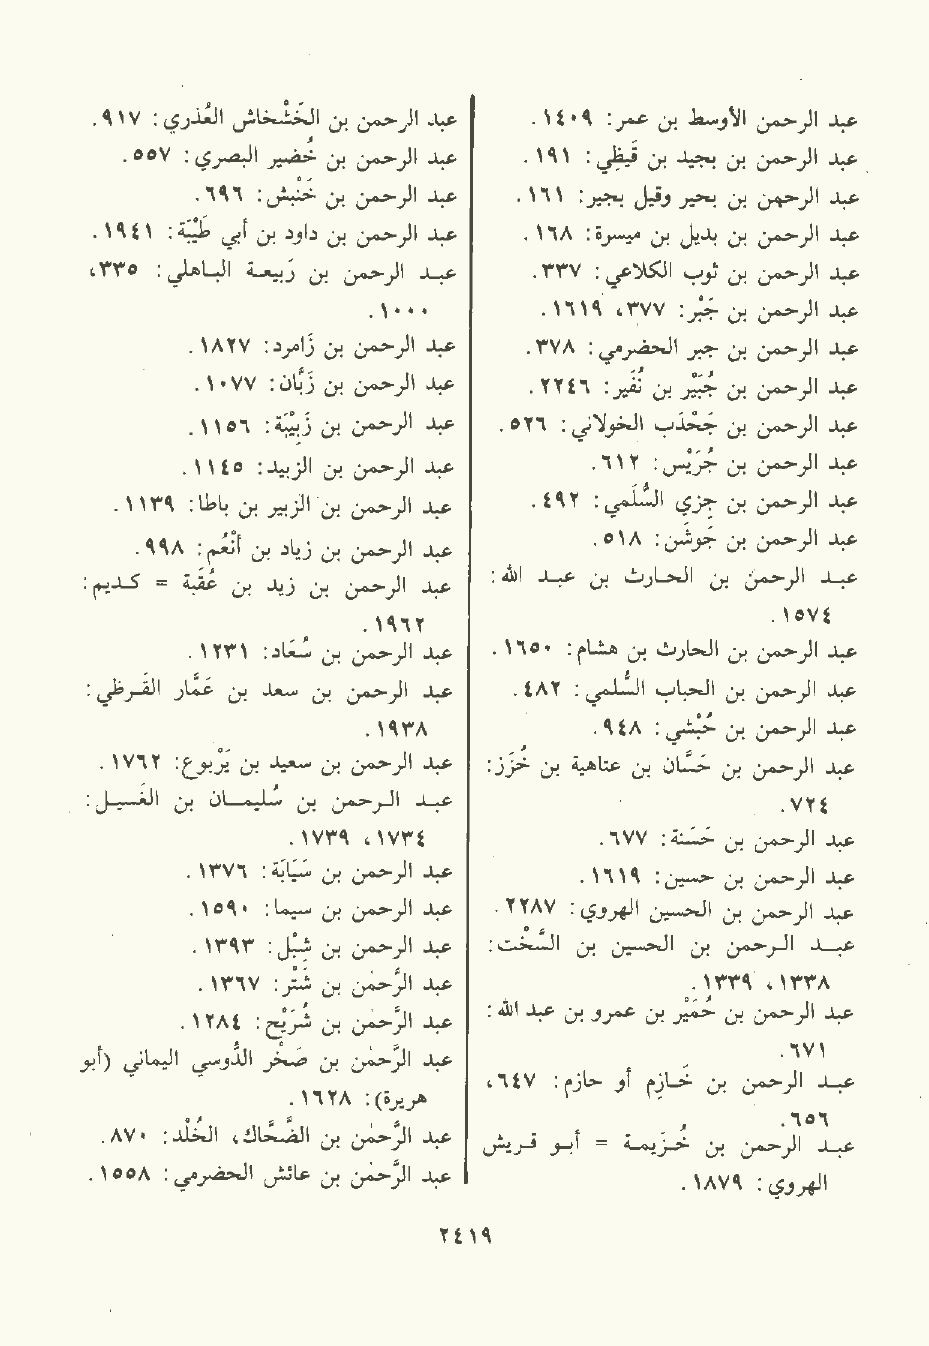 عبد الرحمن الأوسط بن عمر: ١٤٠٩.
عبد الرحمن بن بجيد بن قَيظِي: ١٩١.
عبد الرحمن بن بحير وقيل بجير: ١٦١.
عبد الرحمن بن بديل بن ميسرة: ١٦٨.
عبد الرحمن بن ثوب الكلاعي: ٣٣٧.
عبد الرحمن بن جَبْر: ٣٧٧، ١٦١٩.
عبد الرحمن بن جبر الحضرمي: ٣٧٨.
عبد الرحمن بن جُبَيْر بن نُفَير: ٢٢٤٦.
عبد الرحمن بن جَحْدَب الخولاني: ٥٢٦.
عبد الرحمن بن جُرَيْس: ٦١٢.
عبد الرحمن بن جِزي السُّلَمي: ٤٩٢.
عبد الرحمن بن جَوشَن: ٥١٨.
عبد الرحمن بن الحارث بن عبد الله:
١٥٧٤.
عبد الرحمن بن الحارث بن هشام: ١٦٥٠.
عبد الرحمن بن الحباب السُّلمي: ٤٨٢.
عبد الرحمن بن حُبْشي: ٩٤٨.
عبد الرحمن بن حَسَّان بن عتاهية بن خُزَز:
٧٢٤.
عبد الرحمن بن حَسَنة: ٦٧٧.
عبد الرحمن بن حسين: ١٦١٩.
عبد الرحمن بن الحسين الهروي: ٢٢٨٧.
عبد الرحمن بن الحسين بن السَّخْت:
١٣٣٨، ١٣٣٩.
عبد الرحمن بن حُمَيْر بن عمرو بن عبد الله:
٦٧١.
عبد الرحمن بن خَازِم أو حازم: ٦٤٧،
٦٥٦.
عبد الرحمن بن خُزَيمة = أبو قريش
الهروي: ١٨٧٩.
عبد الرحمن بن الخَشْخاش العُذري: ٩١٧.
عبد الرحمن بن خُضير البصري: ٥٥٧.
عبد الرحمن بن خَنْبش: ٦٩٦.
عبد الرحمن بن داود بن أبي طَيْبَة: ١٩٤١.
عبد الرحمن بن رَبيعة الباهلي: ٣٣٥،
١٠٠٠.
عبد الرحمن بن زَامرد: ١٨٢٧.
عبد الرحمن بن زَبَّان: ١٠٧٧.
عبد الرحمن بن زَبِيْبَة: ١١٥٦.
عبد الرحمن بن الزبيد: ١١٤٥.
عبد الرحمن بن الزبير بن باطا: ١١٣٩.
عبد الرحمن بن زياد بن أَنْعُم: ٩٩٨.
عبد الرحمن بن زيد بن عُقبة = كديم:
١٩٦٢.
عبد الرحمن بن سُعَاد: ١٢٣١.
عبد الرحمن بن سعد بن عَمَّار القَرظي:
١٩٣٨.
عبد الرحمن بن سعيد بن يَرْبوع: ١٧٦٢.
عبد الرحمن بن سُليمان بن الغَسيل:
١٧٣٤، ١٧٣٩.
عبد الرحمن بن سَيَابَة: ١٣٧٦.
عبد الرحمن بن سيما: ١٥٩٠.
عبد الرحمن بن شِبْل: ١٣٩٣.
عبد الرَّحمٰن بن شَتْر: ١٣٦٧.
عبد الرَّحمٰن بن شُرَيْح: ١٢٨٤.
عبد الرَّحمٰن بن صَخْر الدُّوسي اليماني (أبو
هريرة): ١٦٢٨.
عبد الرَّحمٰن بن الضَّحاك، الخُلْد: ٨٧٠.
عبد الرَّحمٰن بن عائش الحضرمي: ١٥٥٨.
٢٤١٩